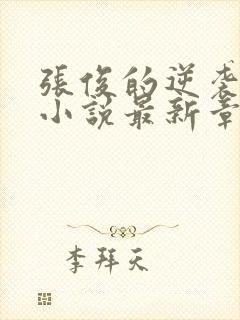 張俊的逆袭
小說最新章
李拜天